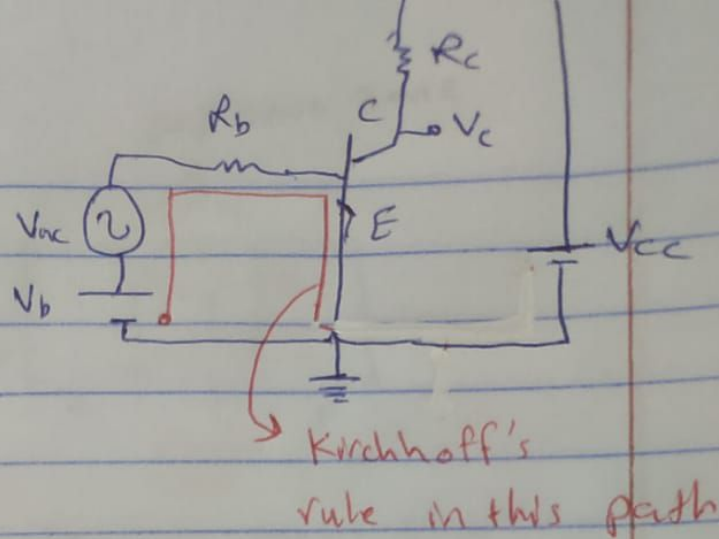 Rc
C
Vc
Rb
Vac
E
Vcc
Vb
Kirchhoff's
rule in this path